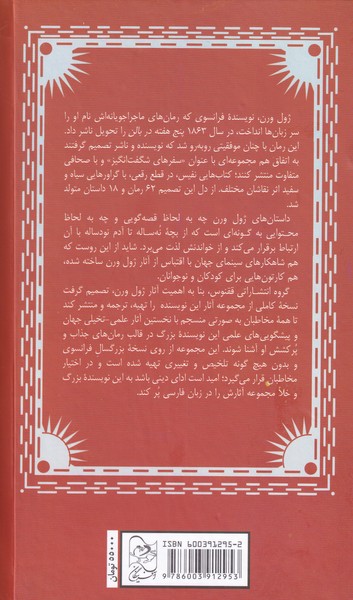 ژول ورن، نویسندهٔ فرانسوی که رمان‌های ماجراجویانه‌اش نام او را
سر زبان‌ها انداخت، در سال ۱۸۶۳ پنج هفته در بالن را تحویل ناشر داد.
این رمان با چنان موفقیتی روبه‌رو شد که نویسنده و ناشر تصمیم گرفتند
به اتفاق هم مجموعه‌ای با عنوان «سفرهای شگفت‌انگیز» و با صحافی
متفاوت منتشر کنند؛ کتاب‌هایی نفیس، در قطع رقعی، با گراورهایی سیاه و
سفید اثر نقاشان مختلف. از دل این تصمیم ۶۲ رمان و ۱۸ داستان متولد
شد.
داستان‌های ژول ورن چه به لحاظ قصه‌گویی و چه به لحاظ
محتوایی به گونه‌ای است که از بچهٔ نُه‌ساله تا آدم نودساله با آن
ارتباط برقرار می‌کند و از خواندنش لذت می‌برد. شاید از این روست که
هم شاهکارهای سینمای جهان با اقتباس از آثار ژول ورن ساخته شده،
هم کارتون‌هایی برای کودکان و نوجوانان.
گروه انتشاراتی ققنوس، بنا به اهمیت آثار ژول ورن، تصمیم گرفت
نسخهٔ کاملی از مجموعه آثار این نویسنده را تهیه، ترجمه و منتشر کند
تا همهٔ مخاطبان به صورتی منسجم با نخستین آثار علمی-تخیلی جهان
و پیشگویی‌های علمی این نویسندهٔ بزرگ در قالب رمان‌های جذاب و
پرکشش او آشنا شوند. این مجموعه از روی نسخهٔ بزرگسال فرانسوی
و بدون هیچ گونه تلخیص و تغییری تهیه شده است و در اختیار
مخاطبان قرار می‌گیرد؛ امید است ادای دینی باشد به این نویسندهٔ بزرگ
و خلأ مجموعه آثارش را در زبان فارسی پر کند.
۵۵۰۰۰ تومان
ISBN 600391295-2
9786003912953